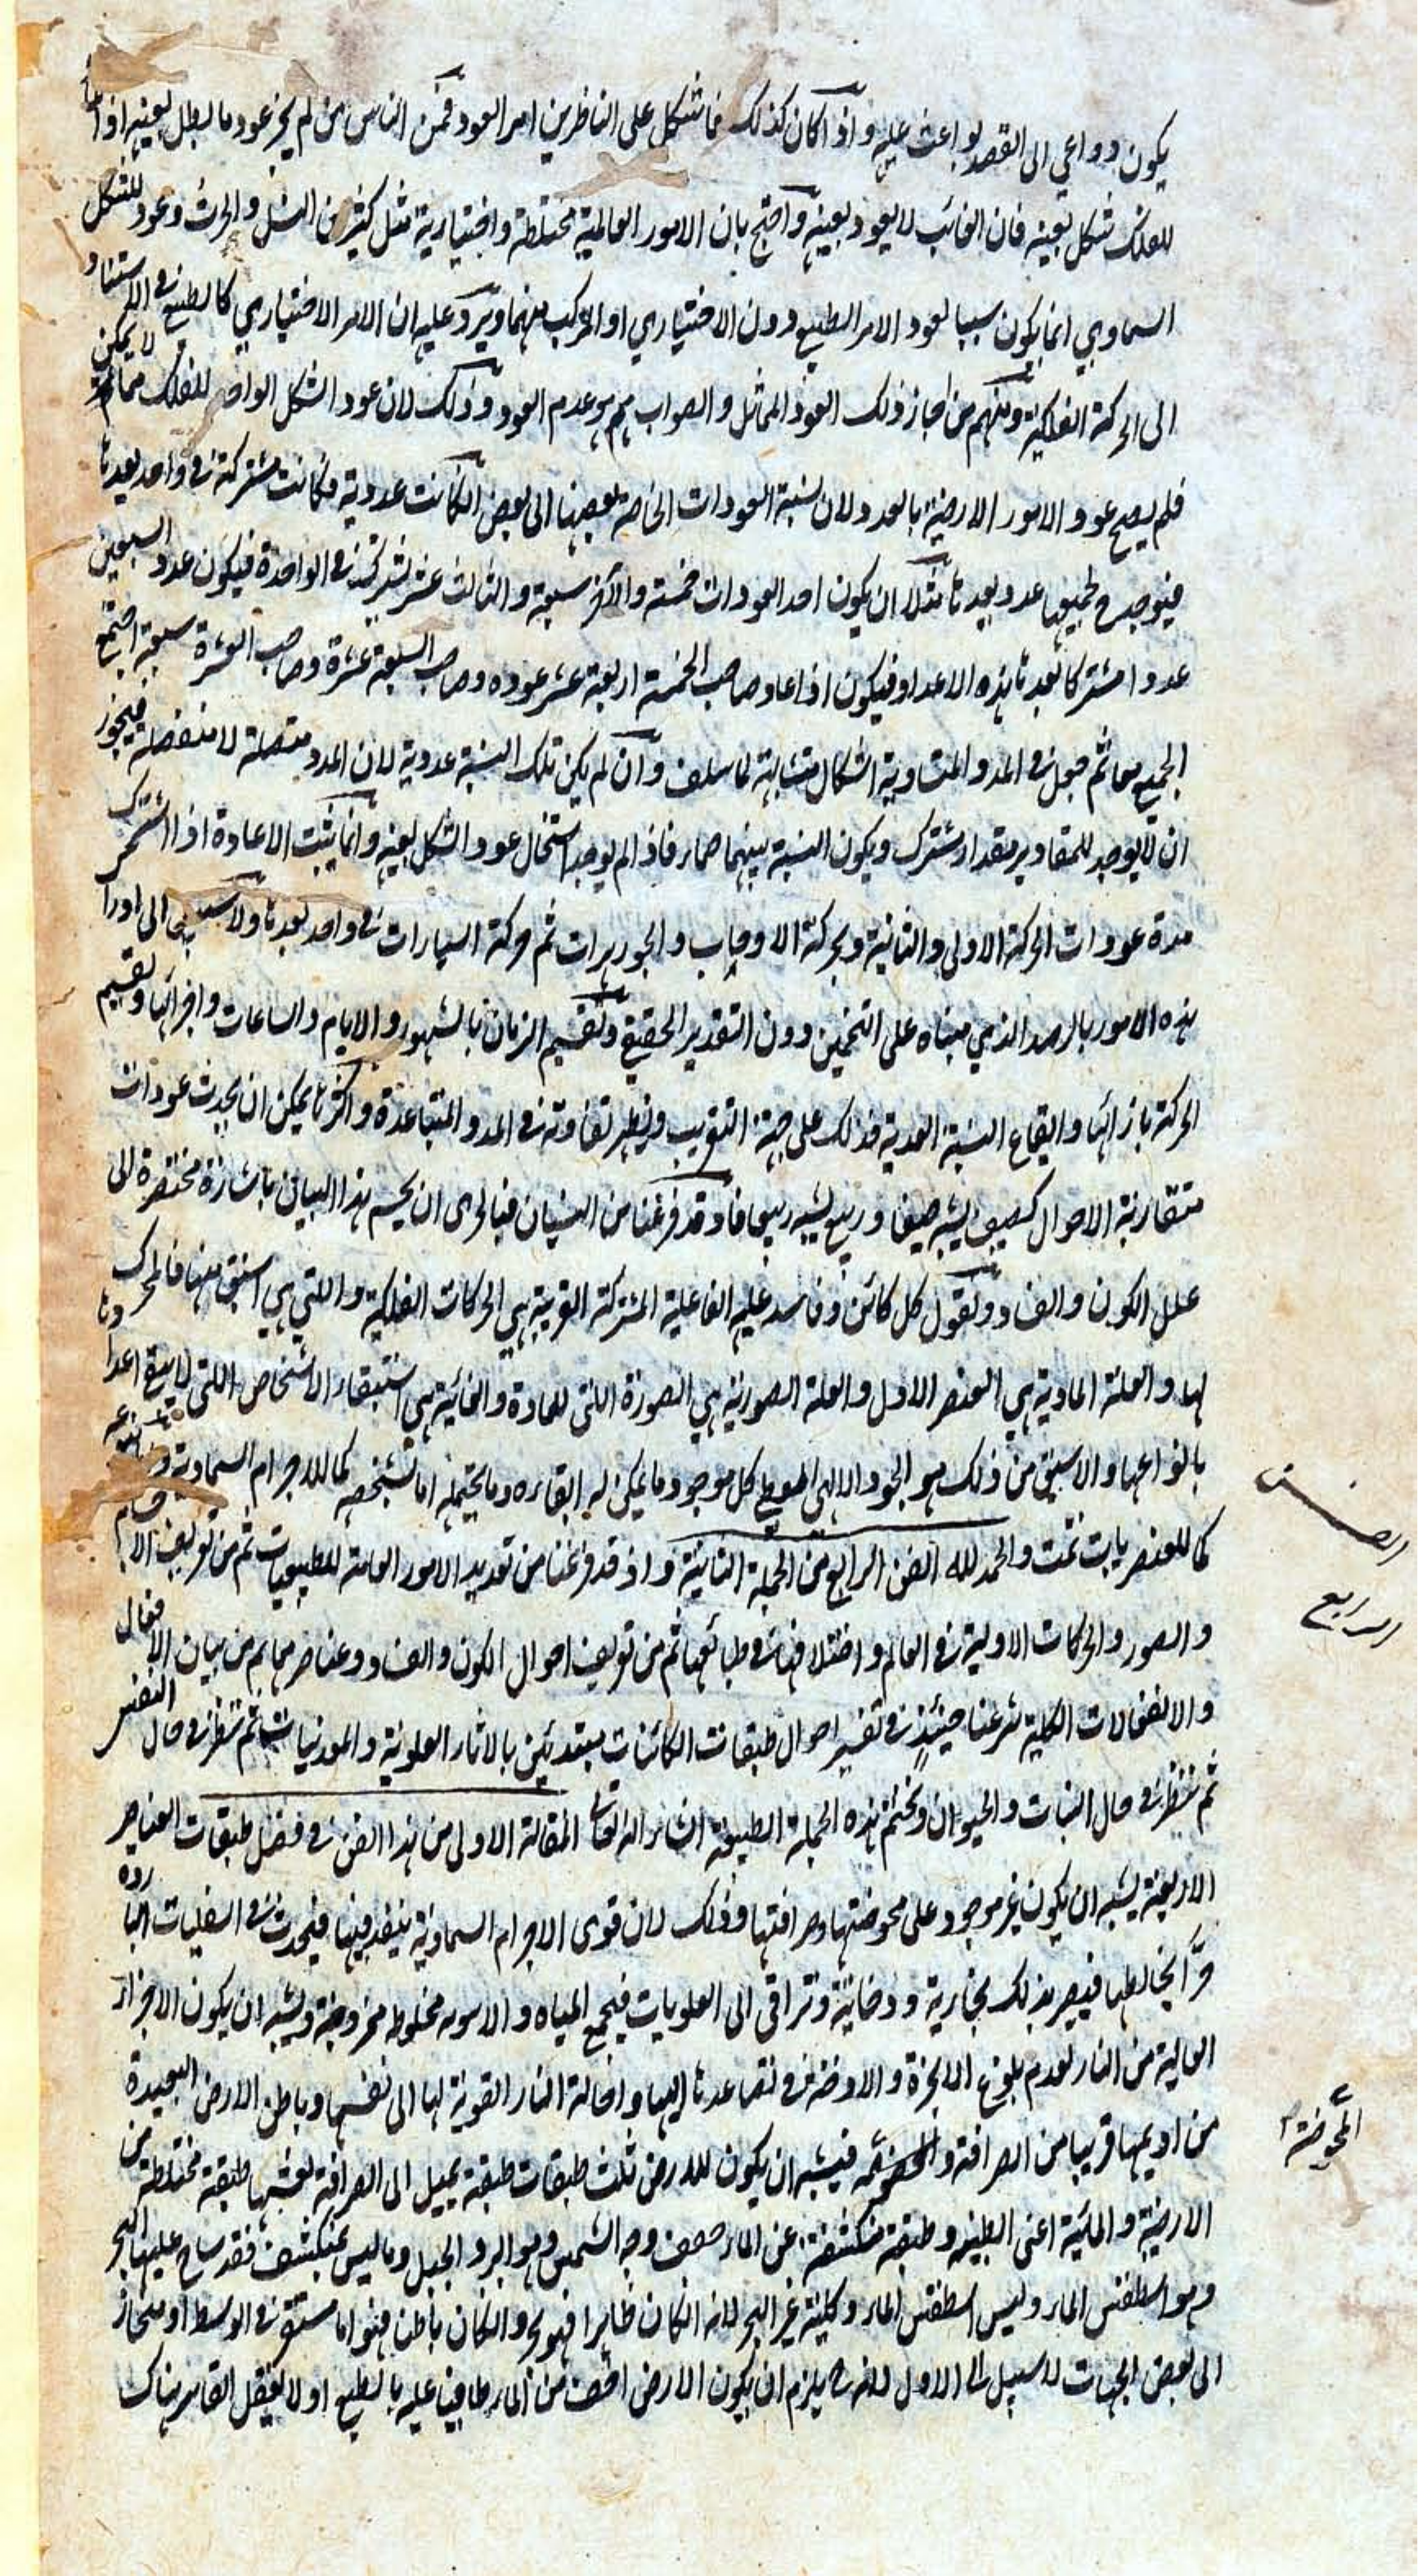 يكون دواعي الى القصد بواعث عليه واذا كان كذلك فما شكل على الناظرين امر العود فمن الناس من لم يجز عود ما بطل بعينه اذا
للفلك شكل بعينه فان الفائت لا يعود بعينه واحتج بان الامور العالمية مختلطة واختيارية مثل كثير من النسل والحرث وعود للشكل
السماوي انما يكون سببا لعود الامر الطبيعي دون الاختياري او المركب منهما ويرد عليه ان الامر الاختياري كالطبيعي في الاستناد
الى الحركة الفلكية ومنهم من اجاز ذلك العود المماثل والصواب هو عدم العود وذلك لان عود الشكل الواحد للفلك مما لا يمكن
فلم يصح عود الامور الارضية بالعدد ولان نسبة العودات الخاصة بعضها الى بعض ان كانت عددية فكانت مشتركة في واحد يعدها
فيوجد لجميعها عدد يعدها مثلا ان يكون احد العودات خمسة والآخر سبعة والثالث عشر تشترك في الواحدة فيكون عدد السبعين
عددا مشتركا تعده هذه الاعداد فيكون اذا عاد صاحب الخمسة اربعة عشر عوده وصاحب السبعة عشرة وصاحب العشرة سبعة اجتمع
الجميع معا ثم جعل في المدد المتساوية اشكال متشابهة لما سلف وان لم يكن تلك النسبة عددية لان المدد متصلة لا منفصلة فيجوز
ان لا يوجد للمقادير مقدار مشترك ويكون النسبة بينهما صماء فاذا لم يوجد استحال عود الشكل بعينه وانما يثبت الاعادة اذا اشترك
مدة عودات الحركة الاولى والثانية وبحركة الاوجات والجوزهرات ثم حركة السيارات في واحد يعدها ولا سبيل الى ادراك
هذه الامور بالرصد الذي مبناه على التخمين دون التقدير الحقيقي وتقسيم الزمان بالشهور والايام والساعات واجزائها وتقسيم
الحركة بازائها وايقاع النسبة العددية فذلك على جهة التقريب ويظهر تفاوته في المدد المتباعدة واكثر ما يمكن ان يحدث عودات
متقاربة الاحوال كصيف يشبه صيفا وربيع يشبه ربيعا فاذ قد فرغنا من البيان فبالحرى ان يحسم هذا البيان باشارة مختصرة الى
علل الكون والفساد ونقول كل كائن وفاسد علته الفاعلية المشتركة القريبة هي الحركات الفلكية والتي هي اسبق منها فالمحرك
لها والعلة المادية هي العنصر الاول والعلة الصورية هي الصورة التي للمادة والغائية هي استبقاء الاشخاص التي لا يبقى اعدادها
بانواعها والاسبق من ذلك هو الجود الالهي المعطي كل موجود ما يمكن له البقاء وما يحتمله اما بشخصه كما للاجرام السماوية واما بنوعه
كما للعنصريات تمت والحمد لله الفن الرابع من الجملة الثانية واذ قد فرغنا من تعديد الامور العامة للطبيعيات ثم من تعريف الاجسام
والصور والحركات الاولية في العالم واختلافها في طبائعها ثم من تعريف احوال الكون والفساد وعناصرهما ثم من بيان الافعال
والانفعالات الكلية شرعنا حينئذ في تفسير احوال طبقات الكائنات مبتدئين بالآثار العلوية والمعدنيات ثم ننظر في حال النفس
ثم ننظر في حال النبات والحيوان ونختم هذه الجملة الطبيعية ان شاء الله تعالى المقالة الاولى من هذا الفن في فصل طبقات العناصر
الاربعة يشبه ان يكون غير موجود على محوضتها وصرافتها وذلك لان قوى الاجرام السماوية ينفذ فيها فيحدث في السفليات الباردة
حرا يخالطها فيصير بذلك بخارية ودخانية وتراقى الى العلويات فيجمع المياه والاهوية مخلوطة ممزوجة ويشبه ان يكون الاجزاء
العالية من النار لعدم بلوغ الابخرة والادخنة في تصاعدها اليها واحالة النار القوية لها الى نفسها وباطن الارض البعيدة
من اديمها قريبا من الصرافة والمحوضة فيشبه ان يكون للارض ثلث طبقات طبقة يميل الى الصرافة تغشيها طبقة مختلطة من
الارضية والمائية اعني الطينية وطبقة منكشفة عن الماء جفف وجه الشمس وهو البر والجبل وما ليس بمنكشف فقد ساح عليها البحر
وهو اسطقس الماء وليس اسطقس الماء وكليته غير البحر لانه ان كان ظاهرا فهو بحر وان كان باطنا فهو اما مستقر في الوسط او منحاز
الى بعض الجهات لا سبيل الى الاول لانه ح يلزم ان يكون الارض اخف من الماء طافيا عليه بالطبع او لا يفعل القاسر هناك
الفن
الرابع
المحوضة